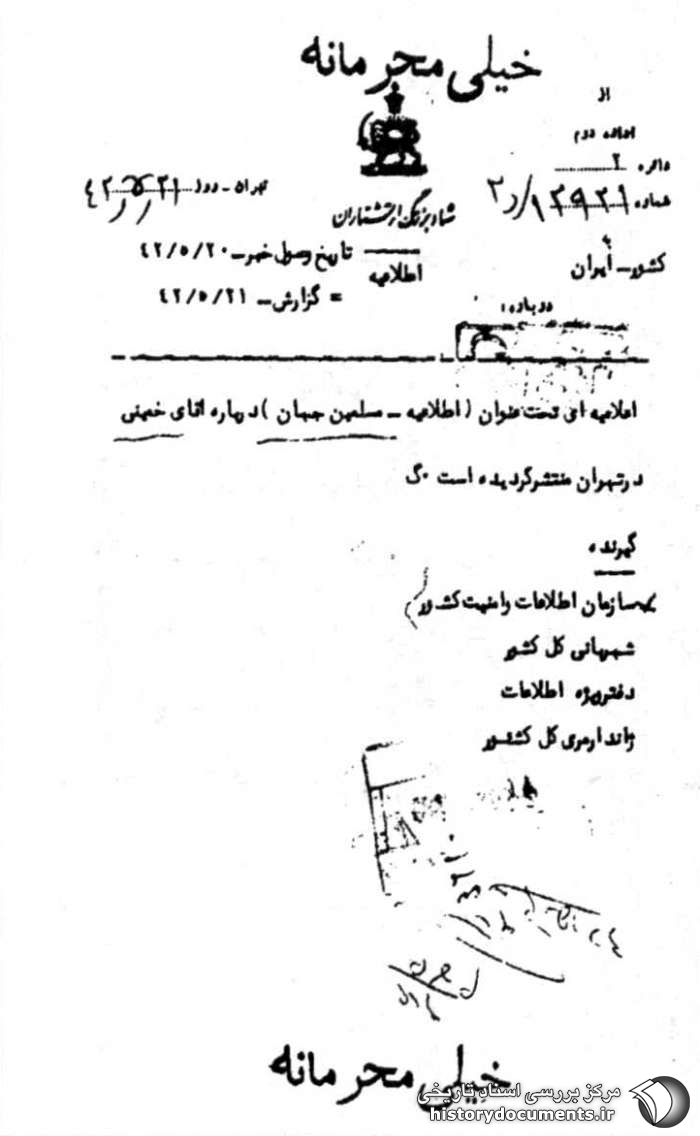 خیلی محرمانه
از
اداره دوم
دائره ۲
شماره
تهران - روز
ستاد بزرگ ارتشتاران
به
کشور - ایران
اطلاعیه
تاریخ وصول خبر - ۴۲/۵/۲۰
= گزارش - ۴۲/۵/۲۱
درباره:
اعلامیه ای تحت عنوان (اطلاعیه - مسلمین جهان) درباره آقای خمینی
در تهران منتشر گردیده است . گ
گیرنده
سازمان اطلاعات و امنیت کشور
شهربانی کل کشور
دفتر ویژه اطلاعات
ژاندارمری کل کشور
خیلی محرمانه
مرکز بررسی اسناد تاریخی
historydocuments.ir